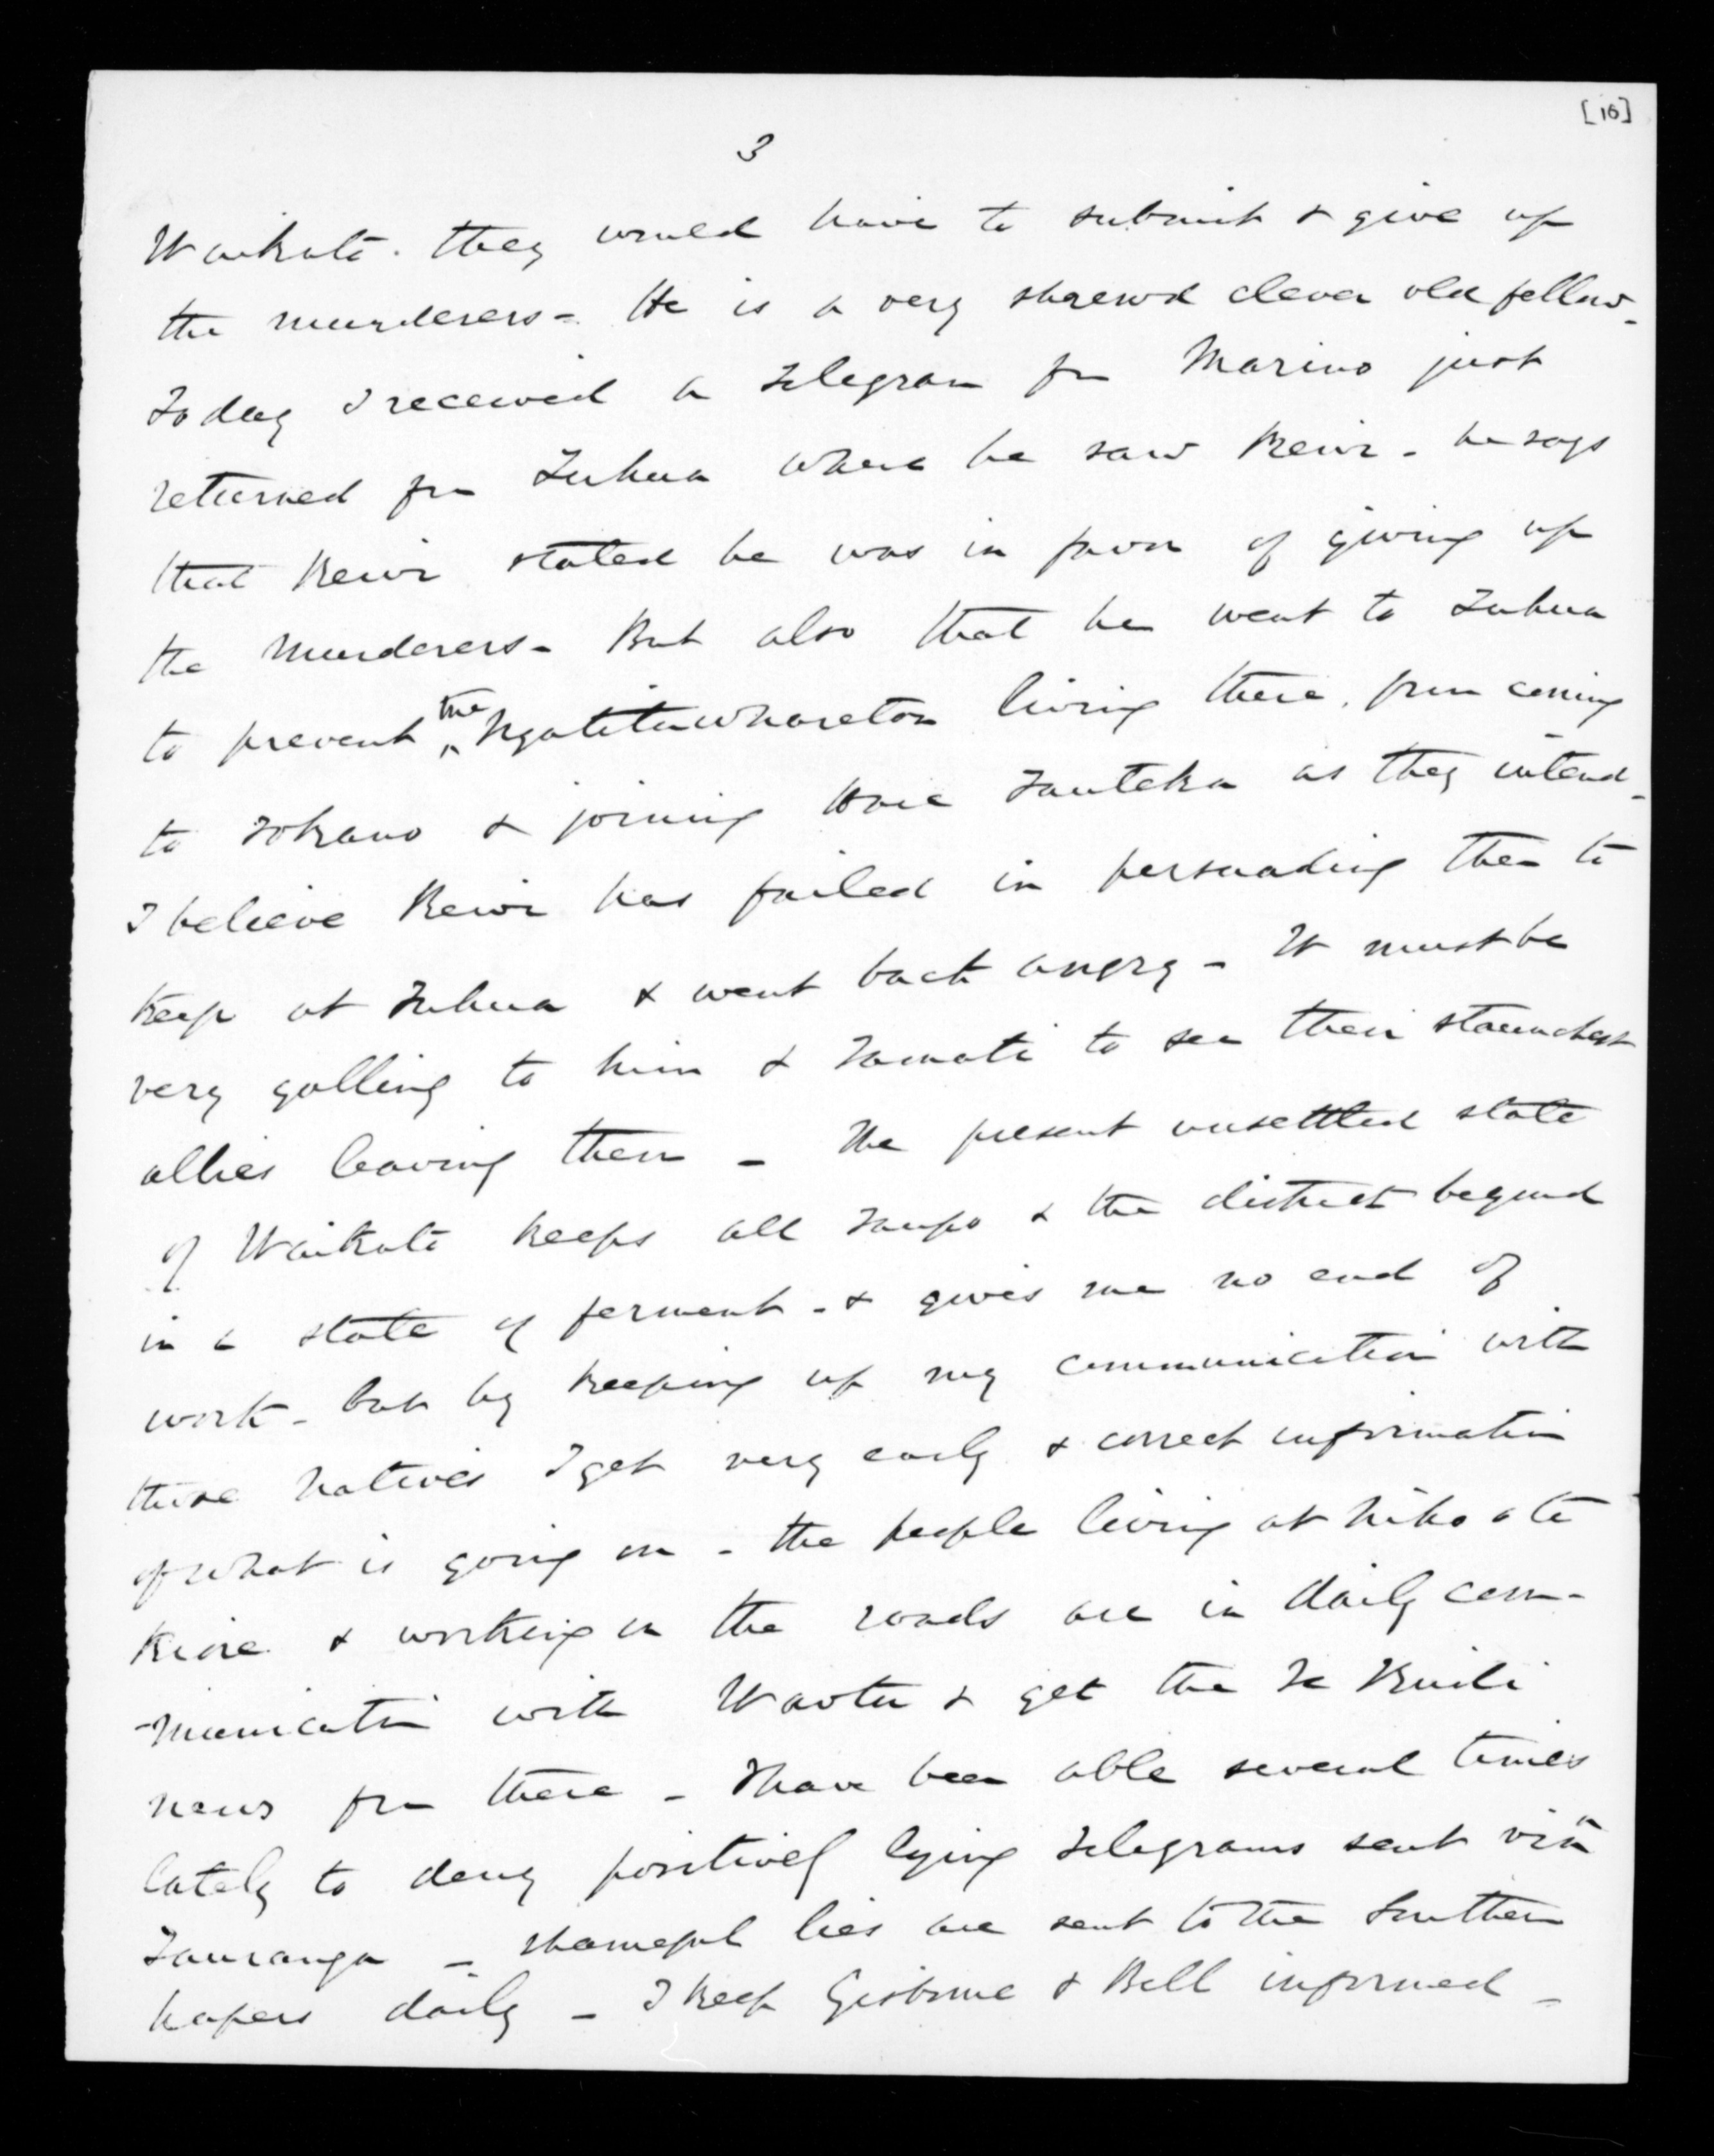 [16]
3
Waikato. they would have to submit & give up
the murderers - He is a very shrewd clever old fellow -
To day I received a telegram fm Marino just
returned fm Tuhua where he saw Rewi - he says
that Rewi stated he was in favor of giving up
the murderers - But also that he went to Tuhua
to prevent the Ngatituwharetoa living there, from coming
to Tokano & joining Hare Tauteka as they intend -
I believe Rewi has failed in persuading them to
keep at Tuhua & went back angry - It must be
very galling to him & Tamati to see their staunchest
allies leaving them - The present unsettled state
of Waikato keeps all Taupo & the district beyond
in a state of ferment - & gives me no end of
work - but by keeping up my communication with
those natives I get very early & correct information
of what is going on - the people living at Niho o te
Kiore & working on the roads are in daily com-
-munication with Waotu & get the Te Kuiti
news fm there - I have been able several times
lately to deny positively lying telegrams sent via
Tauranga - shameful lies are sent to the Southern
papers daily - I keep Gisborne & Bell informed -